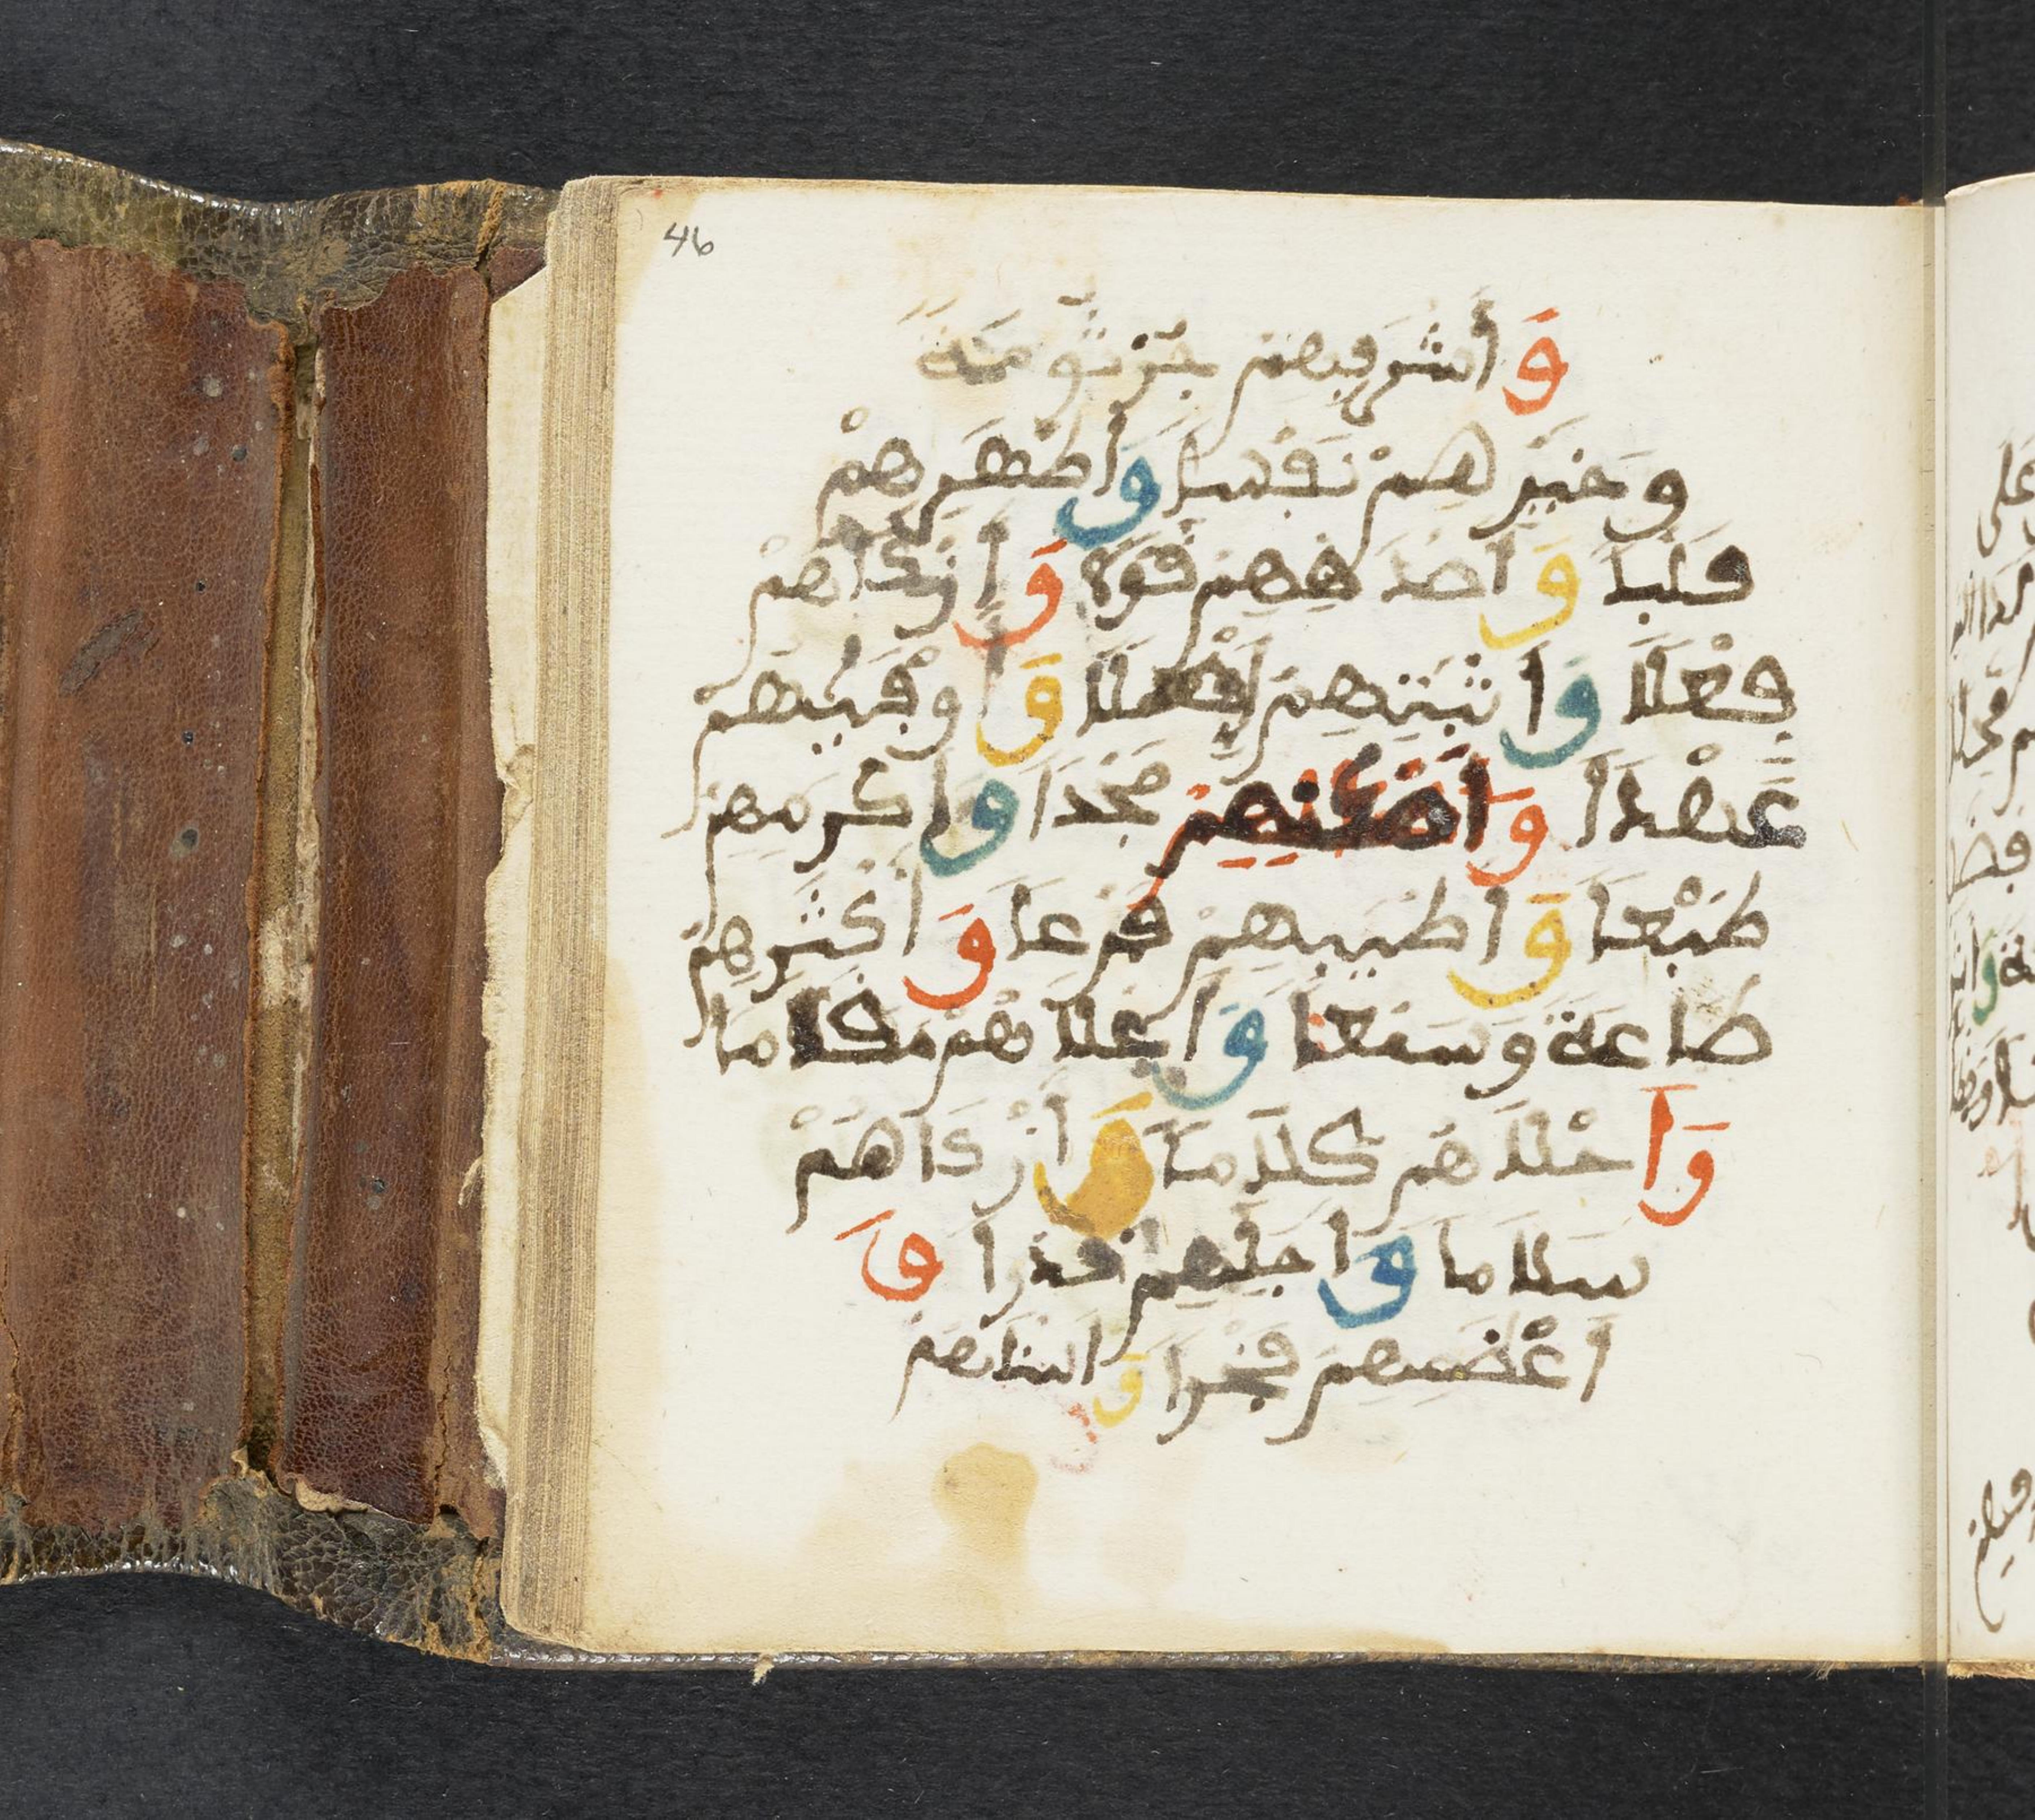 46
وَأَشْرَفِهِمْ جُرْثُومَةً
وَخَيْرِهِمْ نَفْسًا وَأَطْهَرِهِمْ
قَلْبًا وَأَصْدَقِهِمْ قَوْلًا وَأَزْكَاهُمْ
فِعْلًا وَأَثْبَتِهِمْ أَصْلًا وَأَوْفَيهِمْ
عَهْدًا وَأَمْكَنِهِمْ مَجْدًا وَأَكْرَمِهِمْ
طَبْعًا وَأَطْيَبِهِمْ فَرْعًا وَأَكْثَرِهِمْ
طَاعَةً وَسَمْعًا وَأَعْلَاهُمْ مَقَامًا
وَأَحْلَاهُمْ كَلَامًا وَأَزْكَاهُمْ
سَلَامًا وَأَجَلِّهِمْ قَدْرًا وَ
أَعْظَمِهِمْ فَخْرًا وَأَسْنَاهُمْ